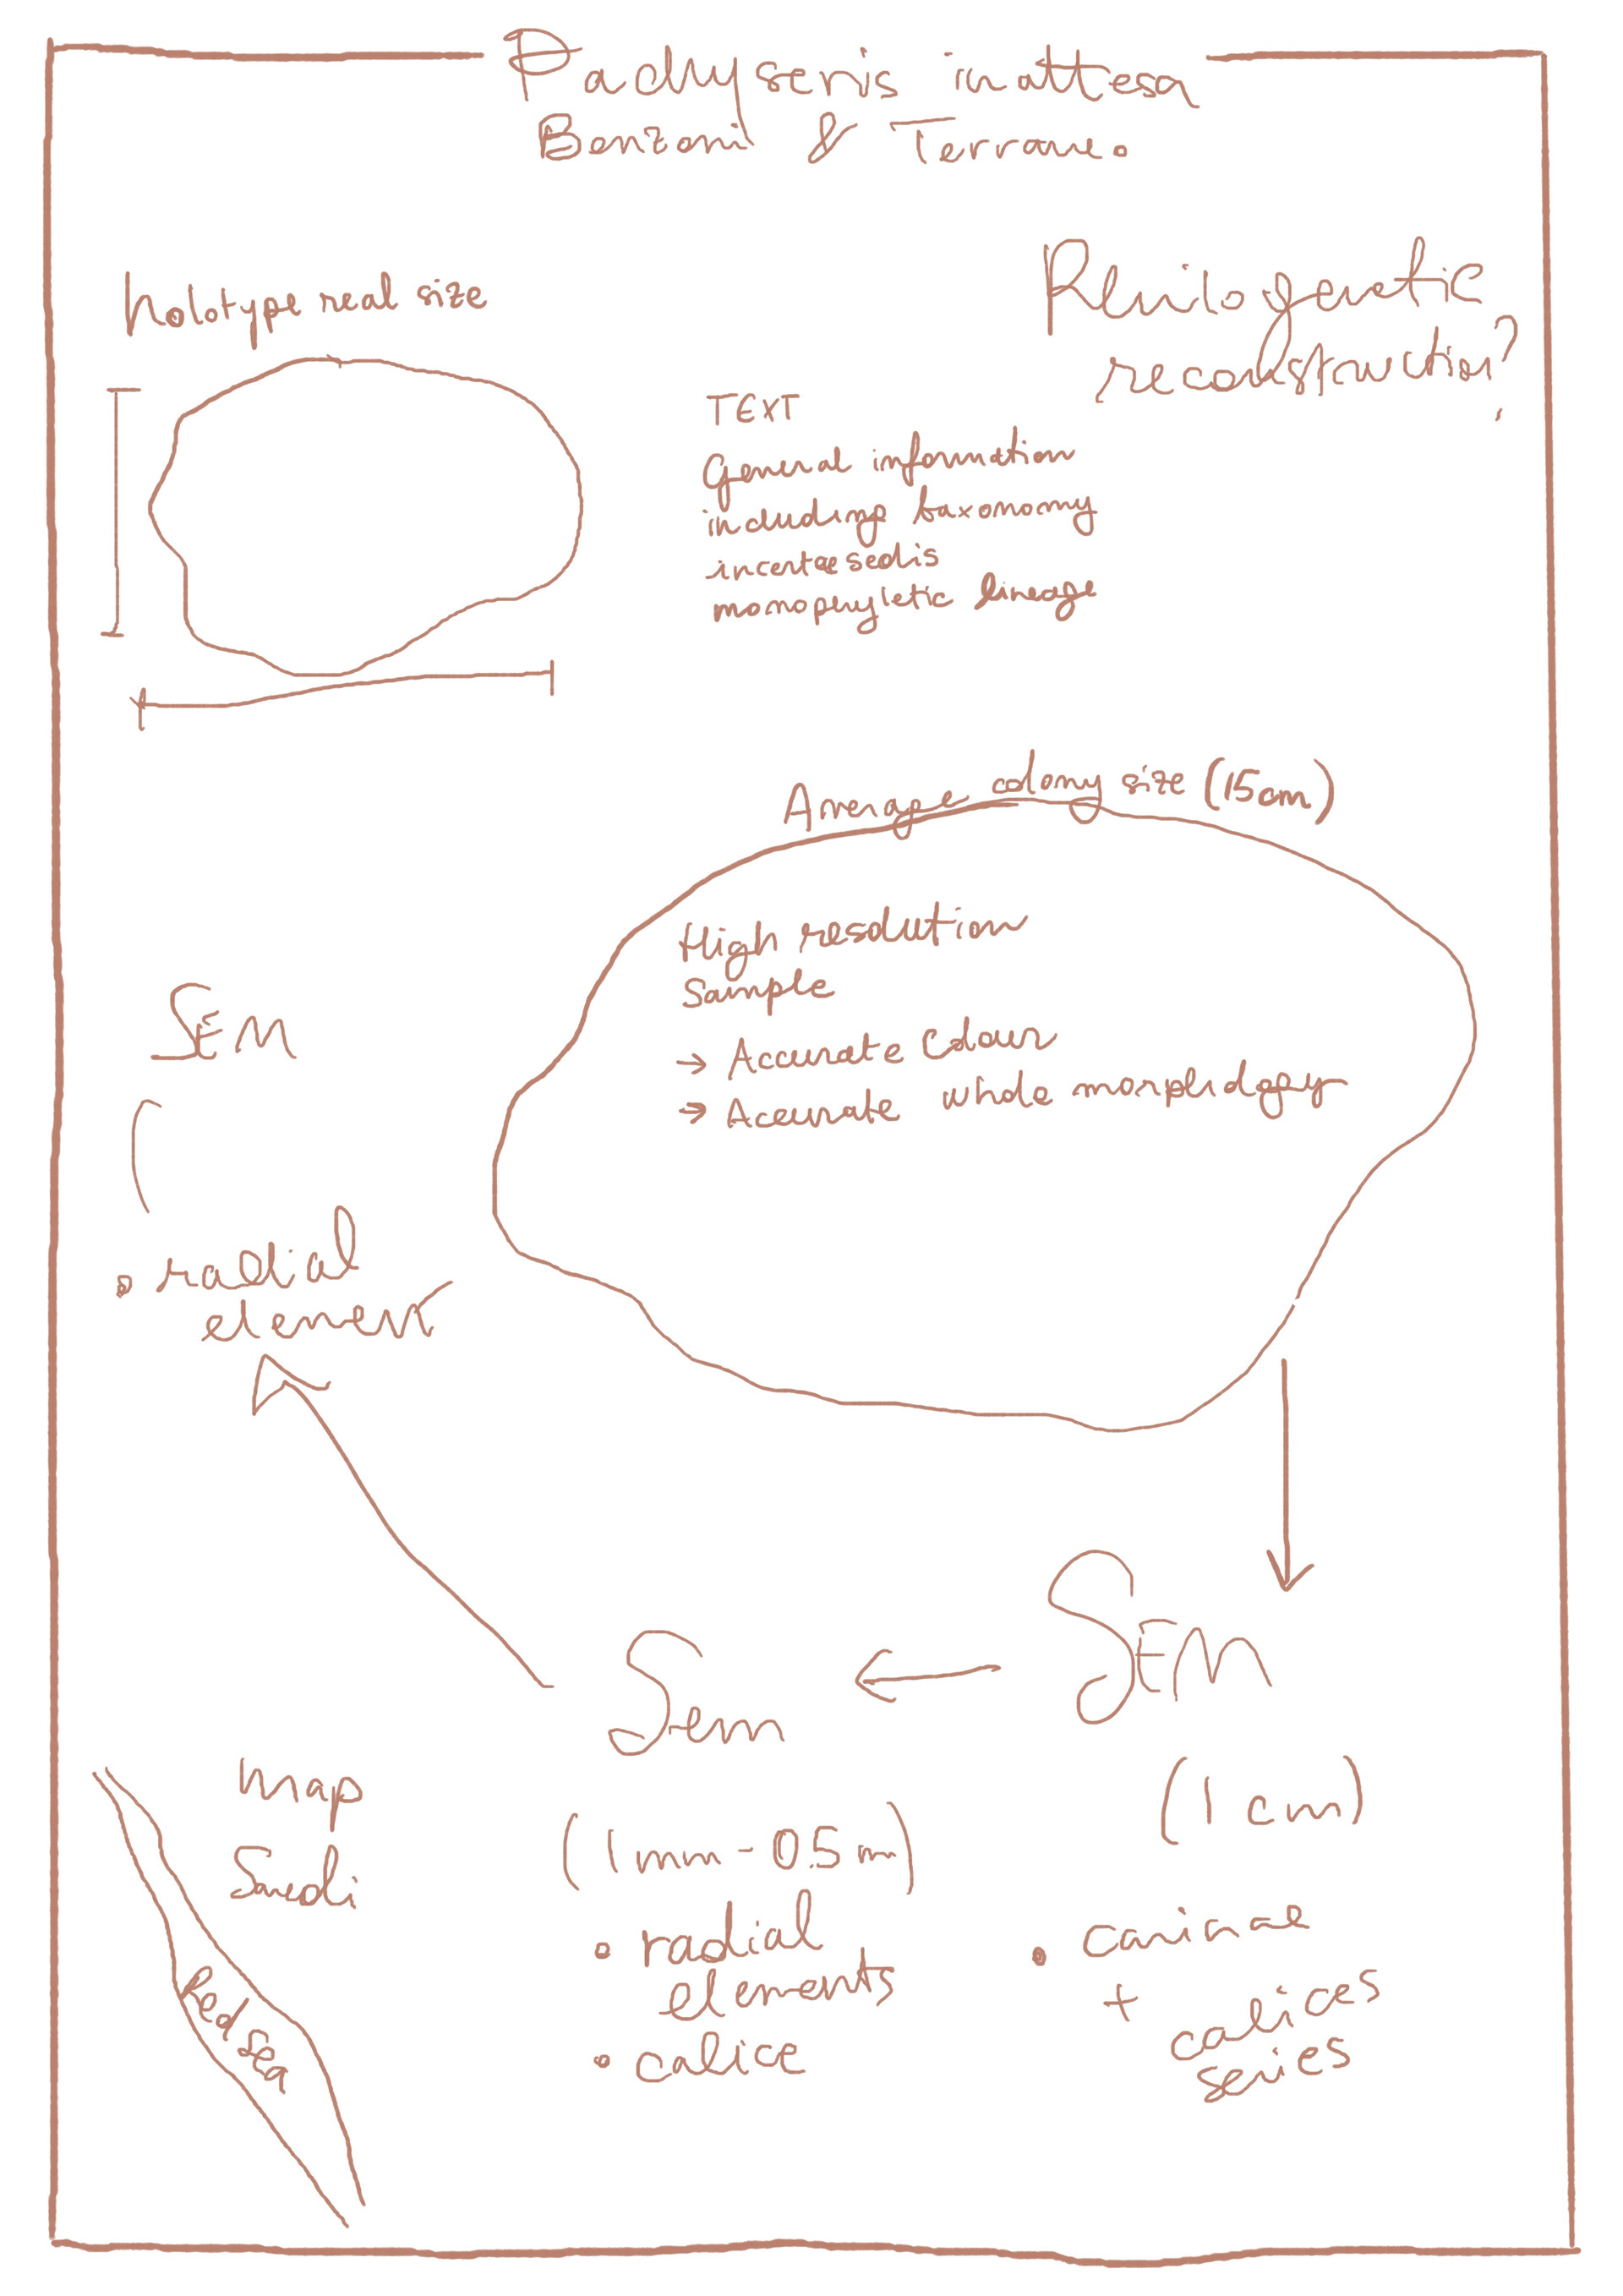 Pachyseris inattesa
Benzoni & Terrano.
holotype real size
Philogenetic
reconstruction?
TEXT
General information
including taxonomy
incertae sedis
monophyletic lineage
Average colony size (15cm)
High resolution
Sample
→ Accurate Colour
→ Accurate whole morphology
SEM
• radial
element
SEM
(1 cm)
• carinae
+
calices
series
Sem
(1mm-0.5m)
• radial
elements
• calice
Map
Saudi
Red Sea